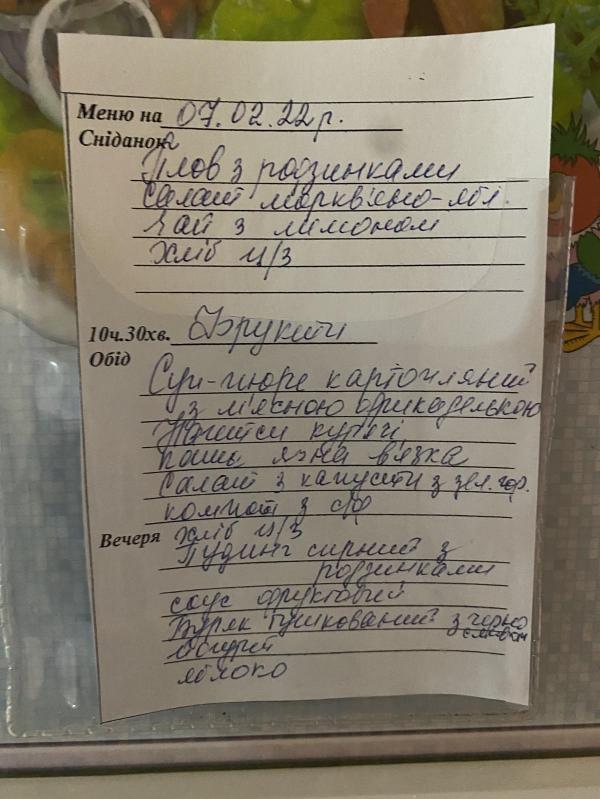 Меню на 07.02.22р.
Сніданок
Плов з родзинками
Салат моркв'яно-ябл.
Чай з лимоном
Хліб ц/з
10ч.30хв. Фрукти
Обід
Суп-пюре картопляний
з м'ясною фрикаделькою
Нагітси курячі
каша ячна в'язка
Салат з капусти з зел. гор.
компот з с/ф
хліб ц/з
Вечеря
Пудинг сирний з
родзинками
соус фруктовий
Буряк тушкований з чорно
сливом
йогурт
яблоко